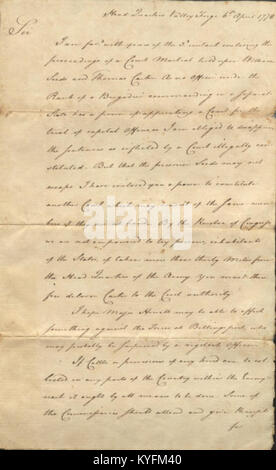 Head Quarters Valley Forge 6th April 1778
Sir
I am fav'd with yours of the 3d instant inclosing the
proceedings of a Court Martial held upon William
Seeds and Thomas Carter. As no Officer under the
Rank of a Brigadier commanding in a separate
State has a power of appointing a Court for the
trial of capital Offences I am obliged to disapprove
the sentence as inflicted by a Court illegally con
stituted. But that the prisoner Seeds may not
escape I have inclosed you a power to constitute
another Court which may consist of the same mem
bers of the one
By the Resolve of Congress
we are not empowered to try persons, inhabitants
of the States if taken more than thirty Miles from
the Head Quarters of the Army. You must there
fore deliver Carter to the Civil authority
I hope Major Howell may be able to effect
something against the Force at Billingsport, who
may probably be surprised by a vigilant Officer.
If Cattle or provision of any kind are to be col
lected in any parts of the Country within the Enemy
reach it ought by all means to be done. Some of
the Commissaries should attend and give Receipts
for
alamy
Image ID: KYFM40
www.alamy.com